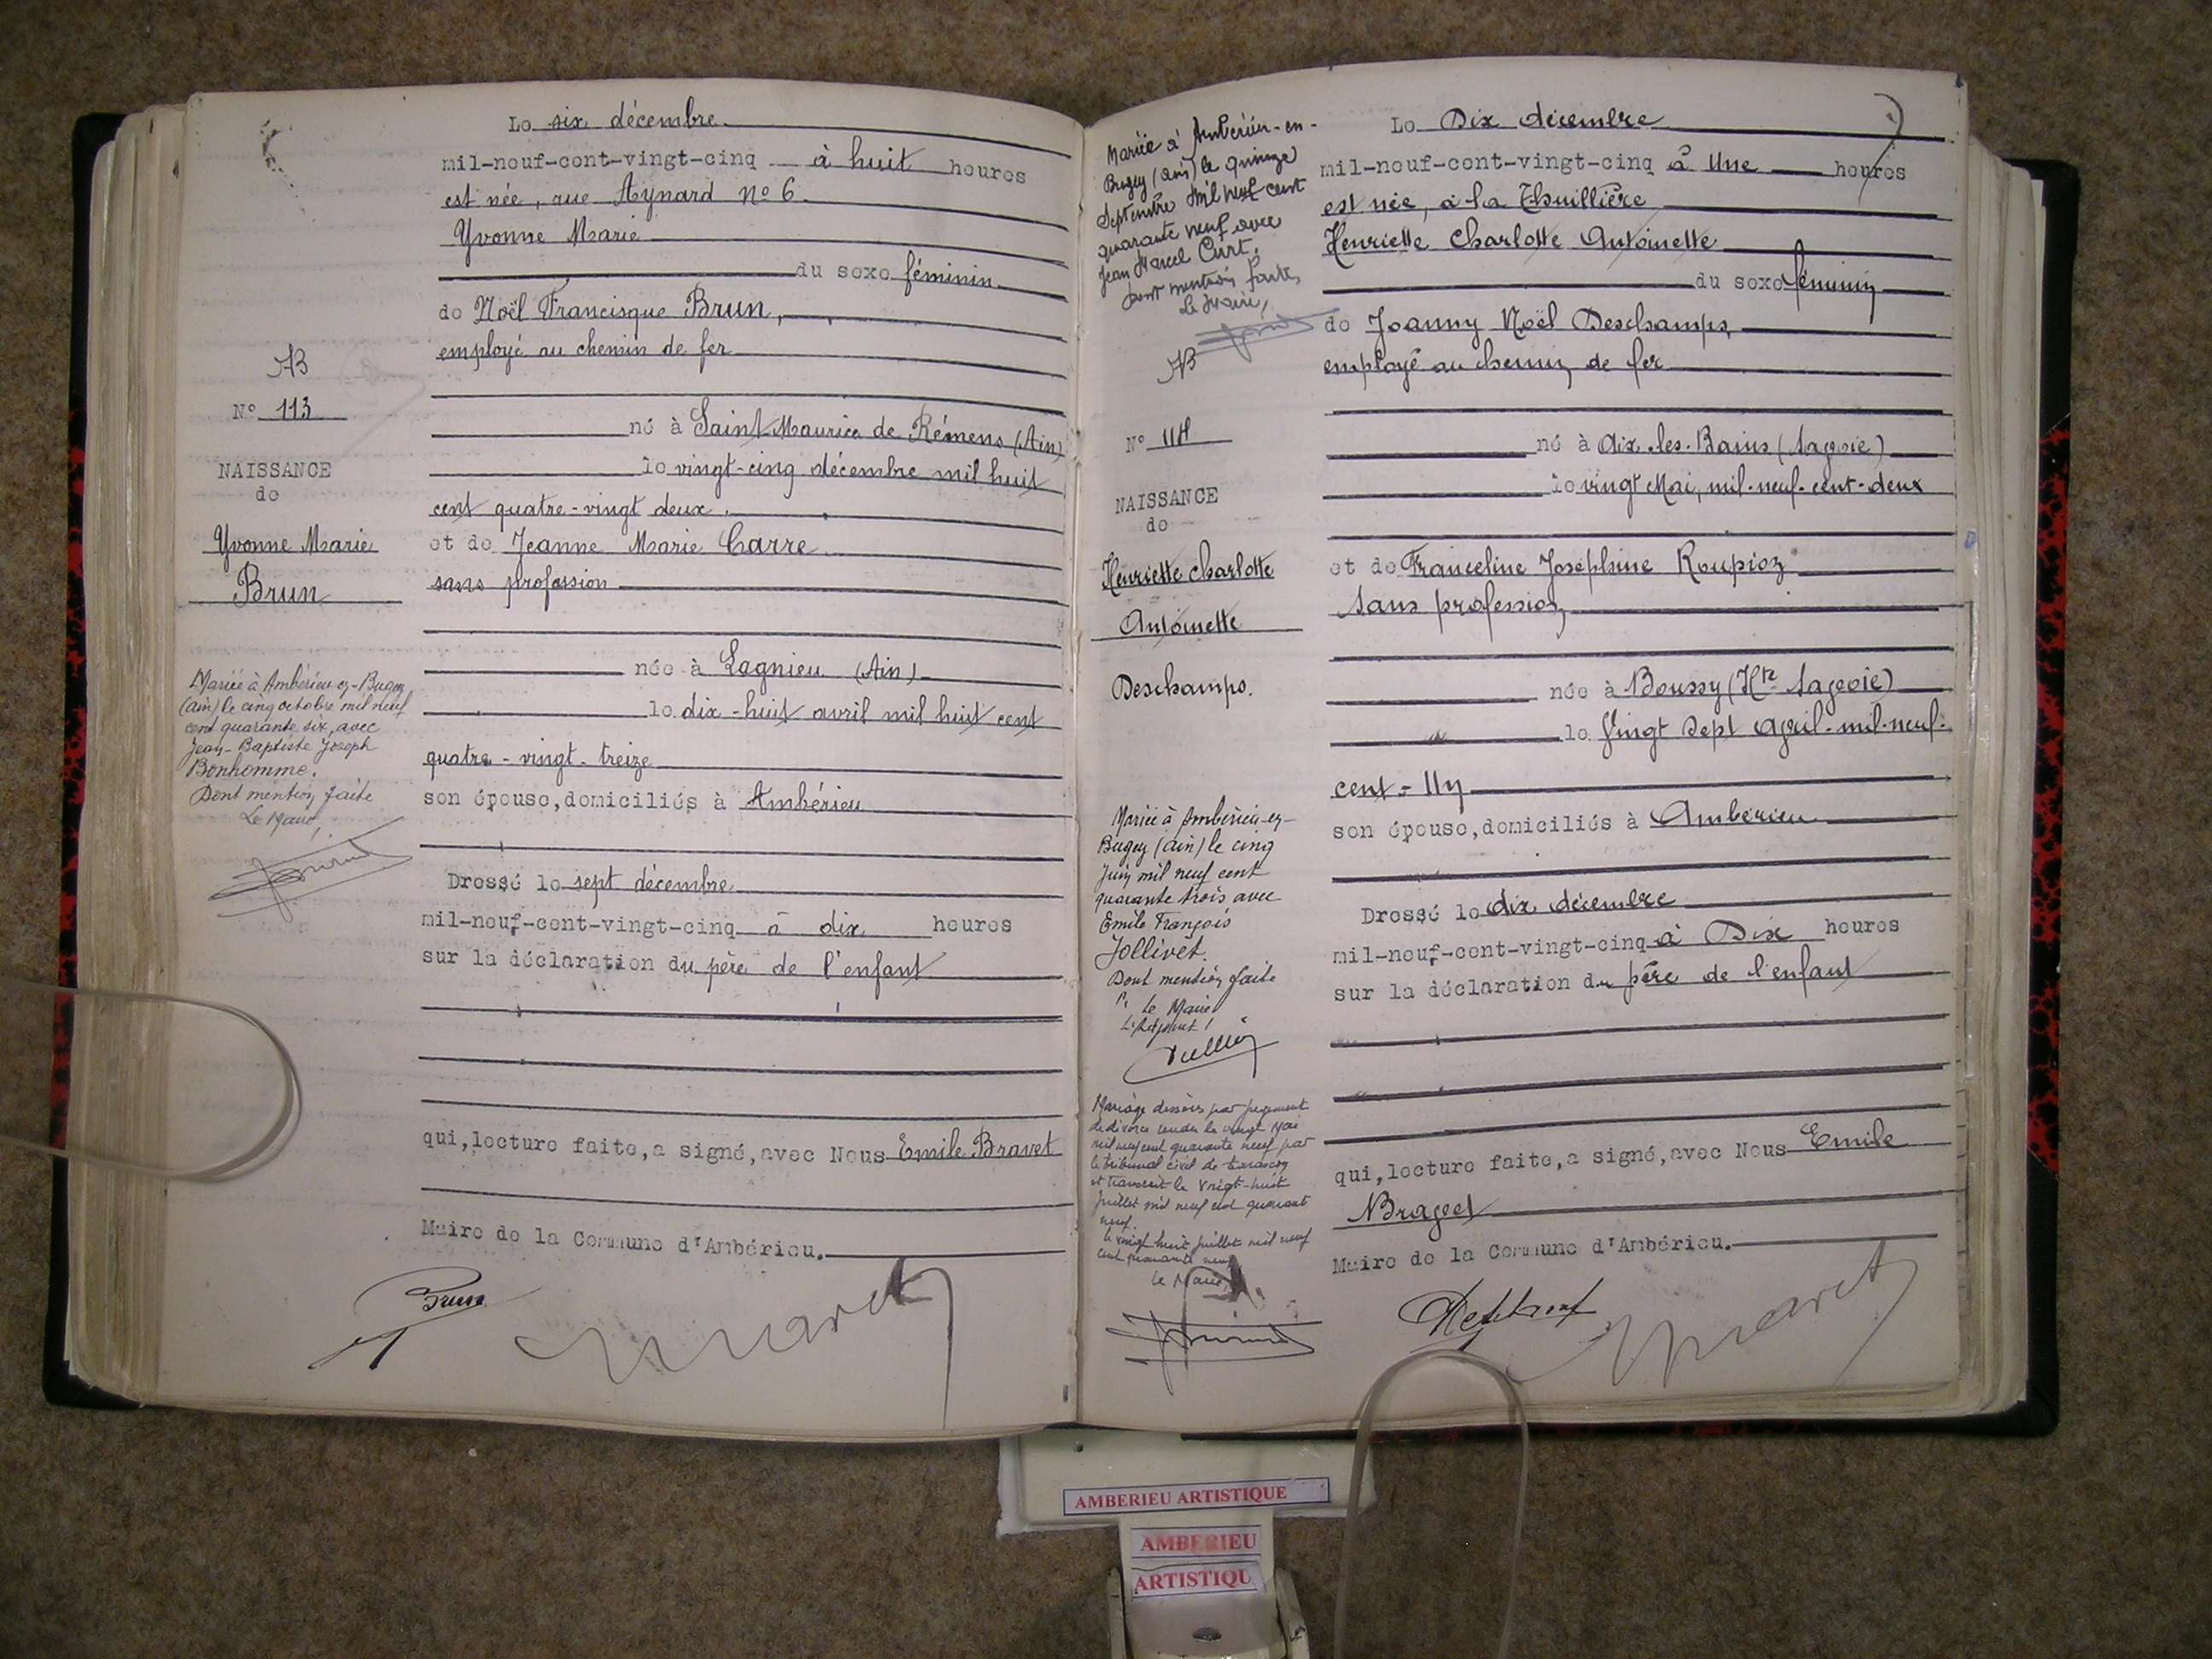 Le six décembre
mil-neuf-cent-vingt-cinq à huit heures
est née, rue Aynard nº 6
Yvonne Marie
du sexe féminin
de Noël Francisque Brun,
employé au chemin de fer
AB
Nº 113
né à Saint Maurice de Rémens (Ain)
NAISSANCE
de
le vingt-cinq décembre mil huit
cent quatre-vingt deux.
Yvonne Marie
Brun
et de Jeanne Marie Carre
sans profession
née à Lagnieu (Ain)
le dix-huit avril mil huit cent
quatre-vingt-treize
son épouse, domiciliés à Ambérieu
Mariée à Ambérieu-en-Bugey
(Ain) le cinq octobre mil neuf
cent quarante six, avec
Jean-Baptiste Joseph
Bonhomme.
Dont mention faite
Le Maire,
Dressé le sept décembre
mil-neuf-cent-vingt-cinq à dix heures
sur la déclaration du père de l'enfant
qui, lecture faite, a signé, avec Nous Emile Bravet
Maire de la Commune d'Ambérieu.
Brun
Bravet
Mariée à Ambérieu-en-
Bugey (Ain) le quinze
Septembre mil neuf cent
quarante neuf avec
Jean Marcel Curt.
Dont mention faite,
Le Maire,
AB
Nº 114
NAISSANCE
de
Henriette Charlotte
Antoinette
Deschamps.
Mariée à Ambérieu-en-
Bugey (Ain) le cinq
Juin mil neuf cent
quarante trois avec
Emile François
Jollivet.
Dont mention faite
Pr le Maire
L'Adjoint
Mariage dissous par jugement
de divorce rendu le vingt Mai
mil neuf cent quarante neuf par
le tribunal civil de Tarascon
et transcrit le vingt-huit
juillet mil neuf cent quarante
neuf.
Le vingt huit juillet mil neuf
cent quarante neuf
Le Maire
Le Dix décembre
mil-neuf-cent-vingt-cinq à Une heures
est née, à la Thuillière
Henriette Charlotte Antoinette
du sexe féminin
de Joanny Noël Deschamps,
employé au chemin de fer
né à Aix-les-Bains (Savoie)
le vingt Mai, mil-neuf-cent-deux
et de Franceline Joséphine Roupioz
Sans profession
née à Boussy (Hte Savoie)
le Vingt Sept Avril-mil-neuf-
cent-Un
son épouse, domiciliés à Ambérieu
Dressé le dix décembre
mil-neuf-cent-vingt-cinq à Dix heures
sur la déclaration du père de l'enfant
qui, lecture faite, a signé, avec Nous Emile
Bravet
Maire de la Commune d'Ambérieu.
Bravet
AMBERIEU ARTISTIQUE
AMBERIEU
ARTISTIQU